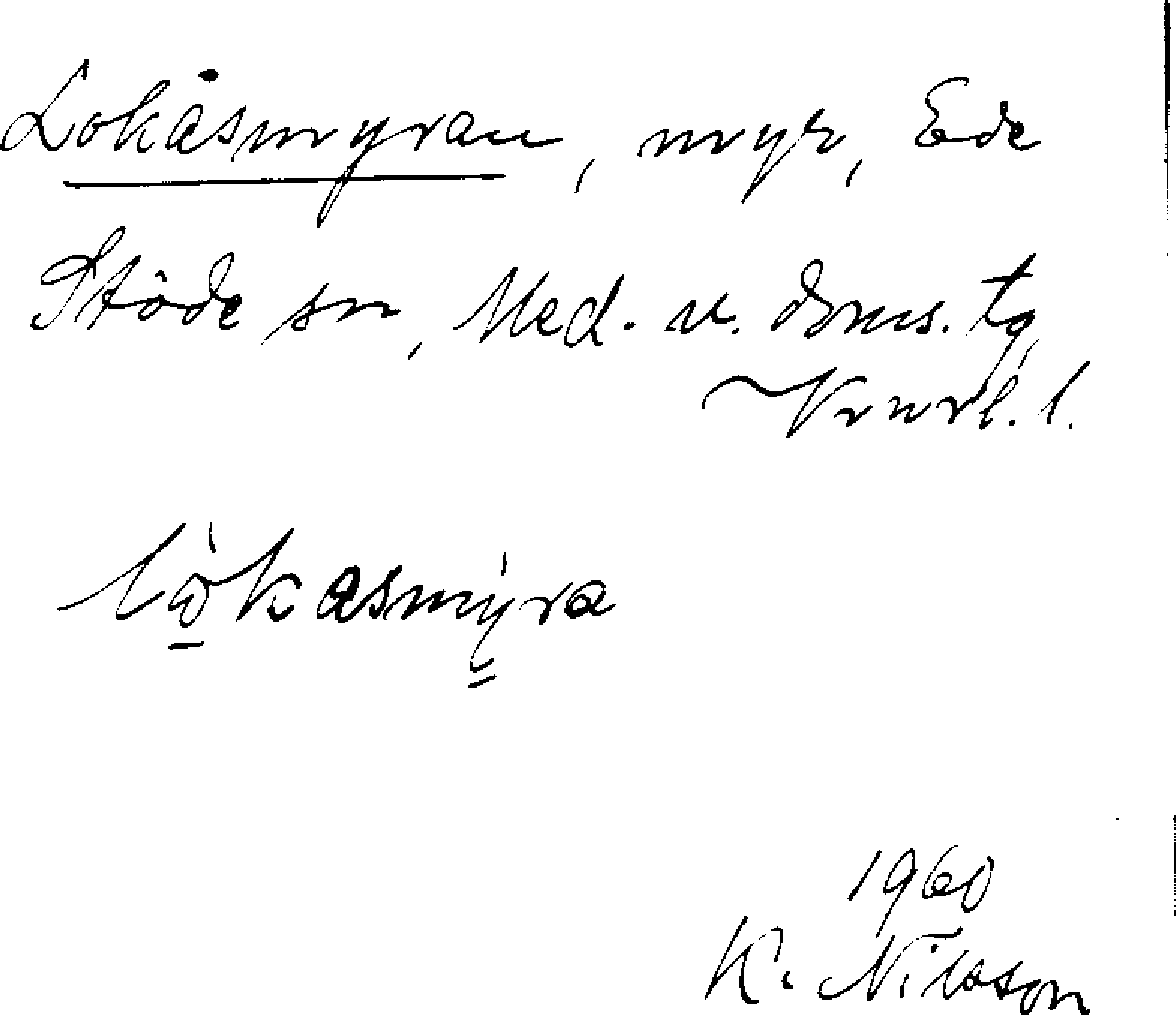 Lokåsmyran, myr, Ede
Stöde sn, Med. v. doms. tg,
Vnrl. l.
lòkasmýra
1960
K. Nilsson